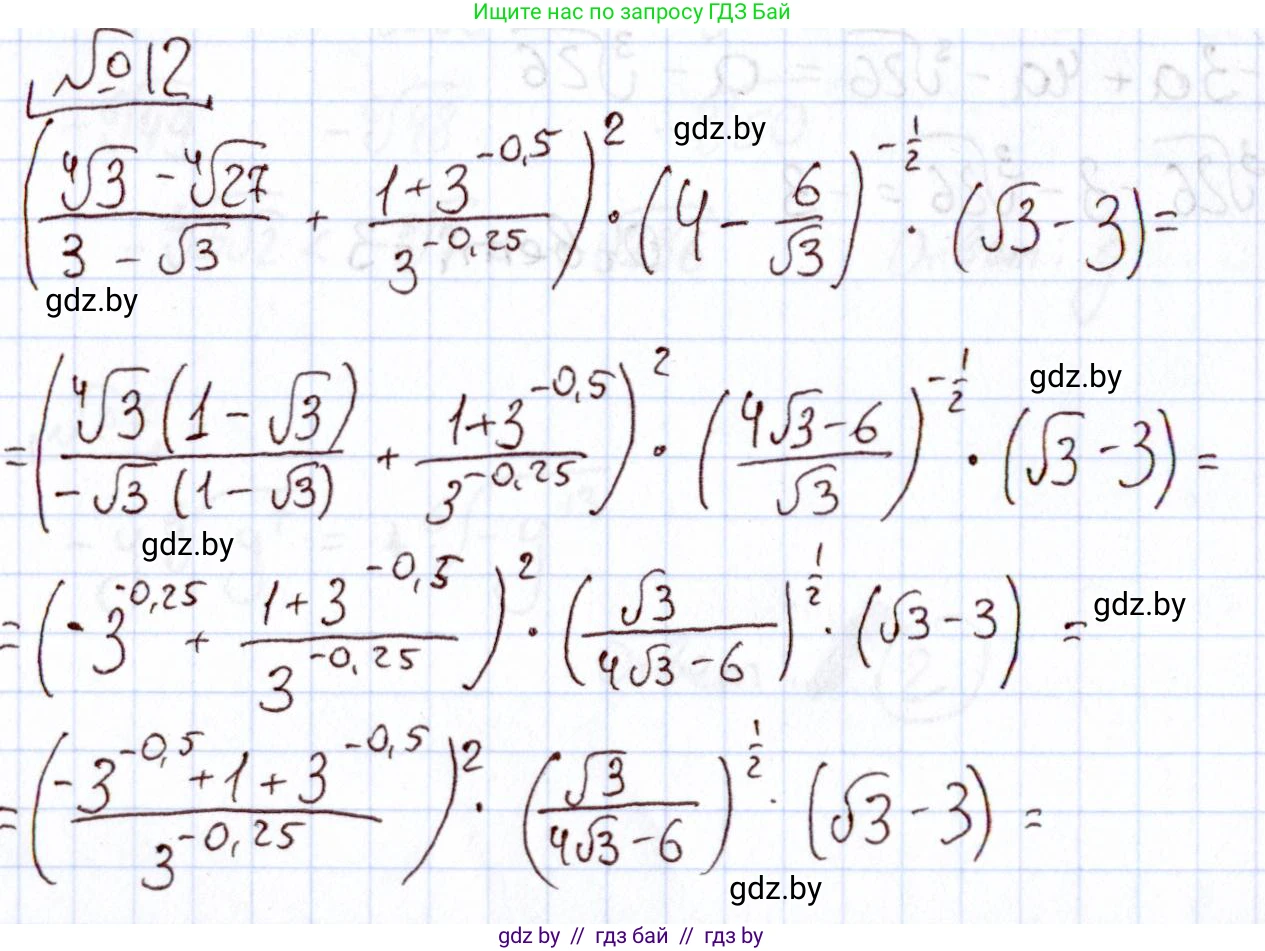 Ищите нас по запросу ГДЗ Бай
№12
((∜3 - ∜27)/(3 - √3) + (1+3^(-0,5))/(3^(-0,25)))^2 · (4 - 6/√3)^(-1/2) · (√3 - 3) =
gdz.by
gdz.by
= ((∜3(1 - √3))/(-√3(1-√3)) + (1+3^(-0,5))/(3^(-0,25)))^2 · ((4√3-6)/√3)^(-1/2) · (√3 - 3) =
gdz.by
gdz.by
= (-3^(-0,25) + (1+3^(-0,5))/(3^(-0,25)))^2 · (√3/(4√3-6))^(1/2) · (√3-3) =
gdz.by
= ((-3^(-0,5)+1+3^(-0,5))/(3^(-0,25)))^2 · (√3/(4√3-6))^(1/2) · (√3-3) =
gdz.by
gdz by // гдз бай // гдз by